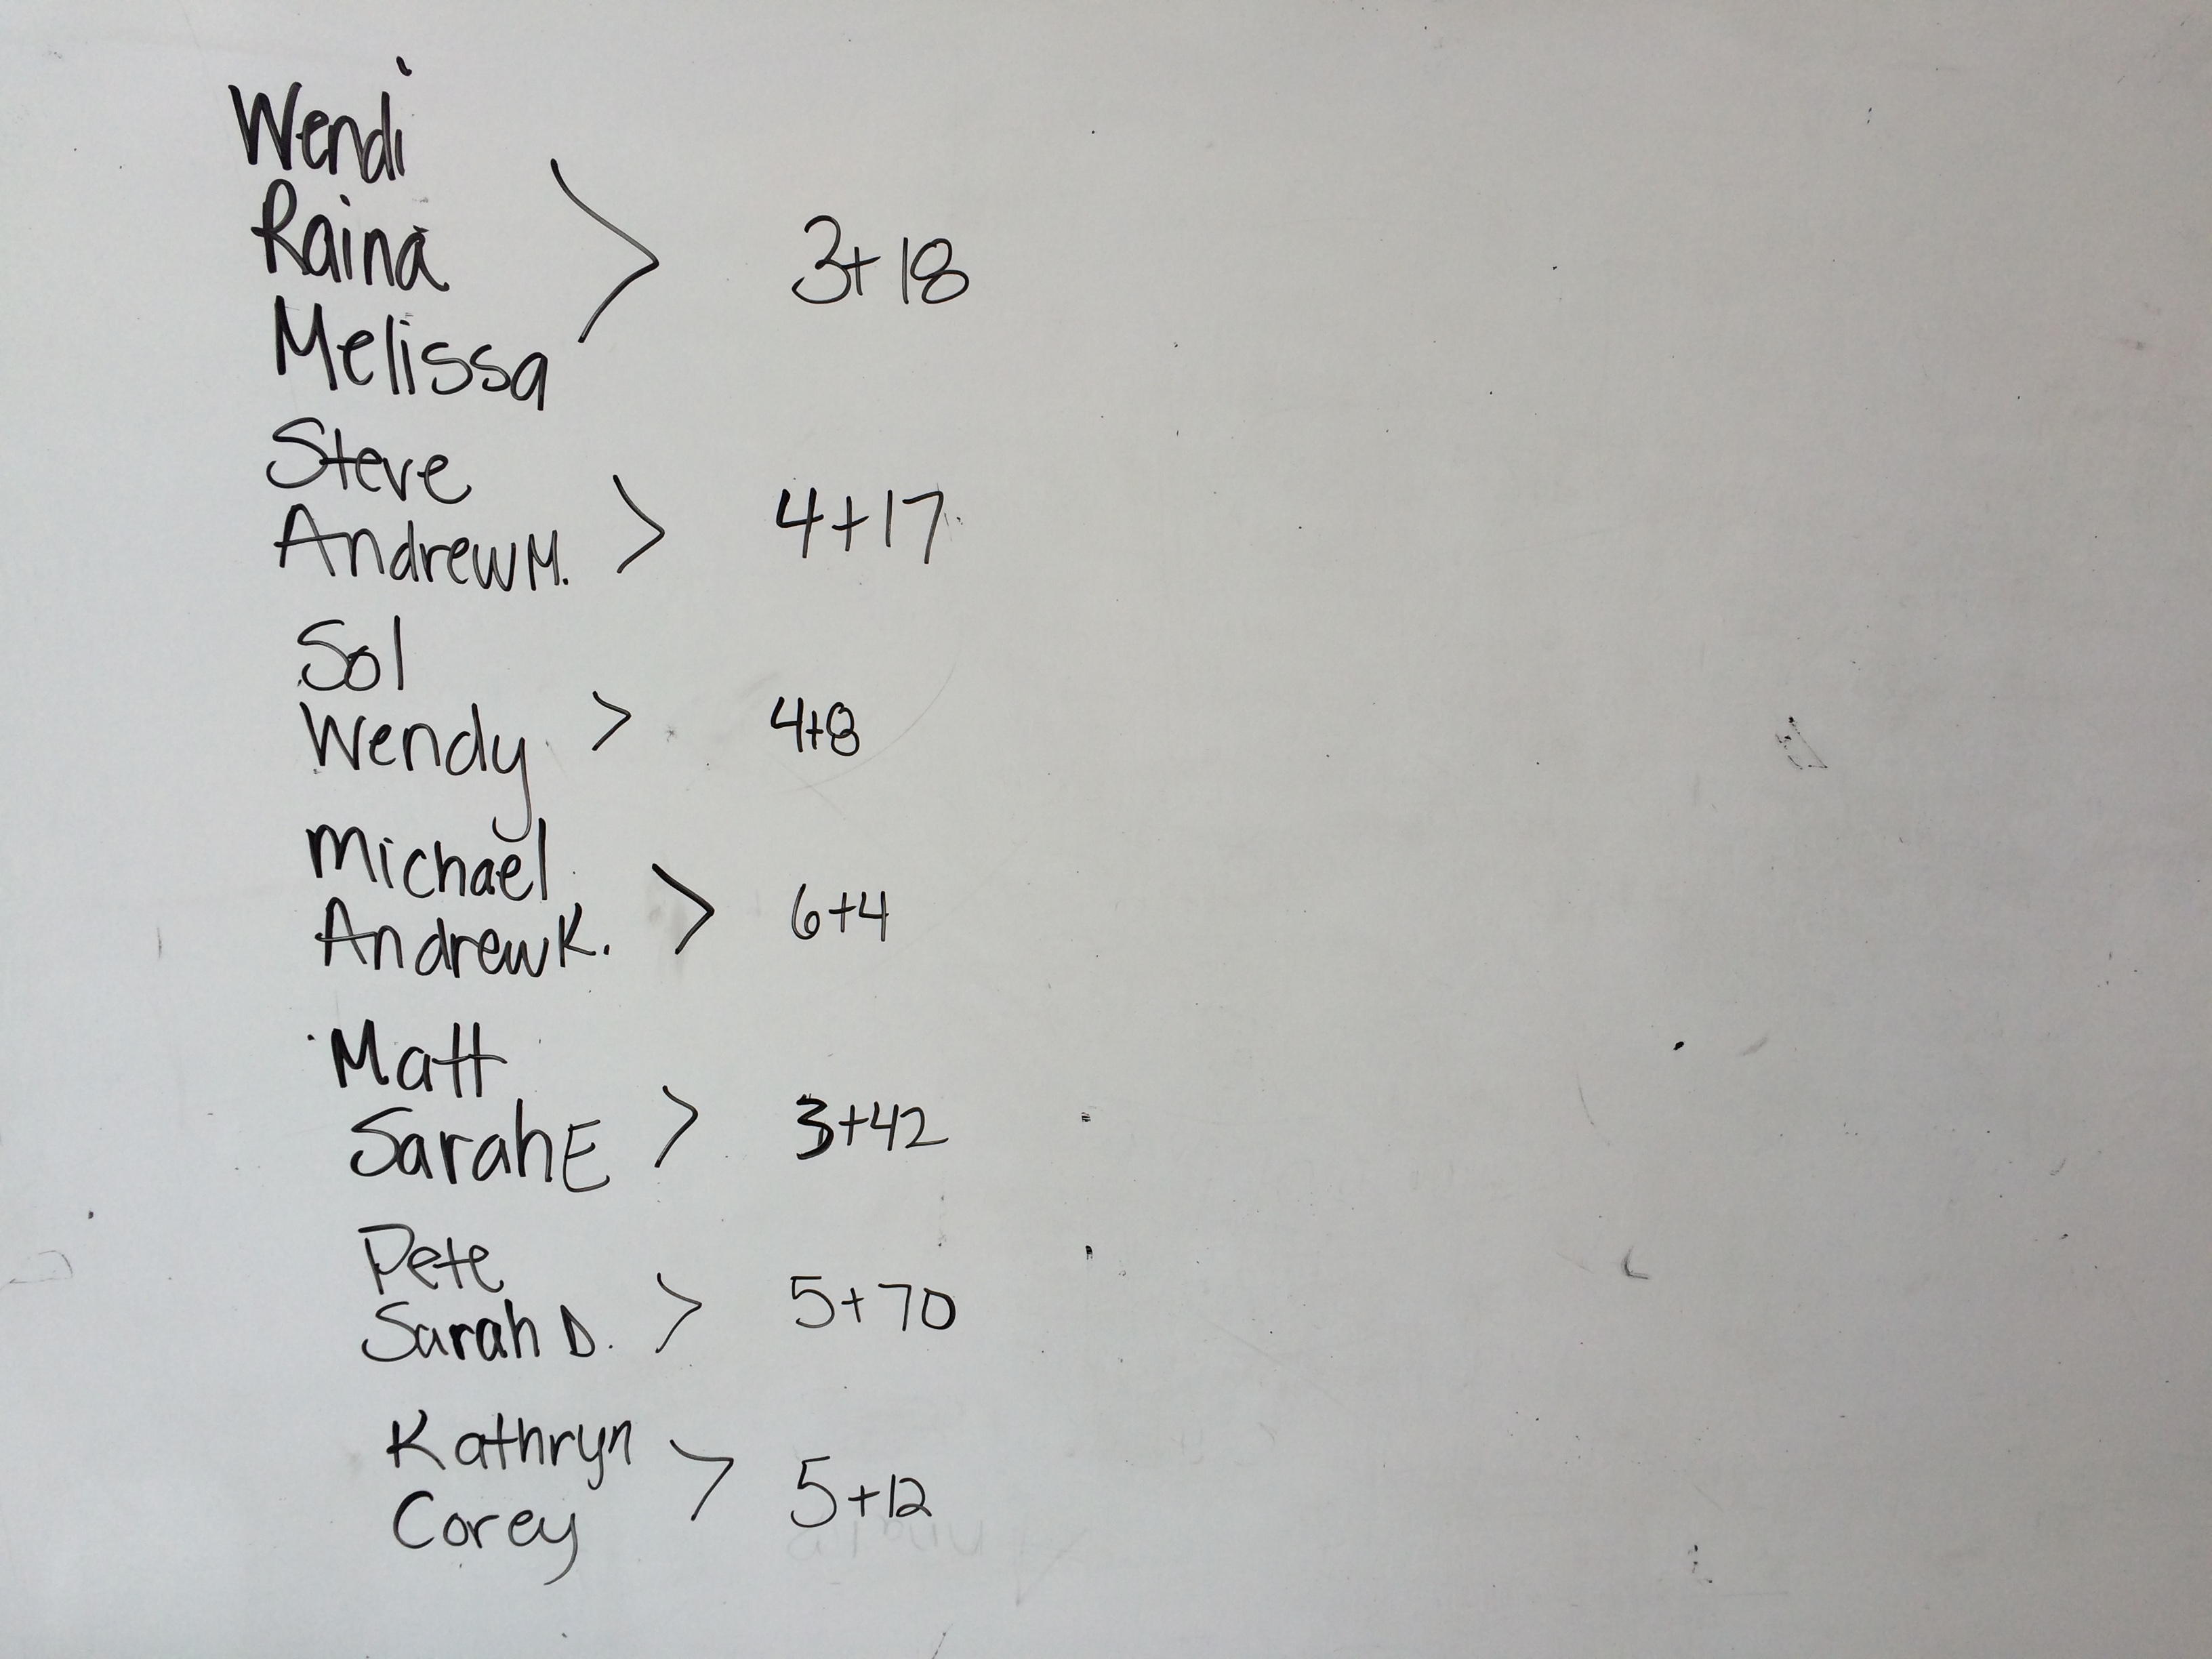 Wendi
Raina
Melissa > 3+18
Steve
Andrew M. > 4+17
Sol
Wendy > 4+8
Michael
Andrew K. > 6+4
Matt
Sarah E > 3+42
Pete
Sarah D. > 5+70
Kathryn
Corey > 5+12